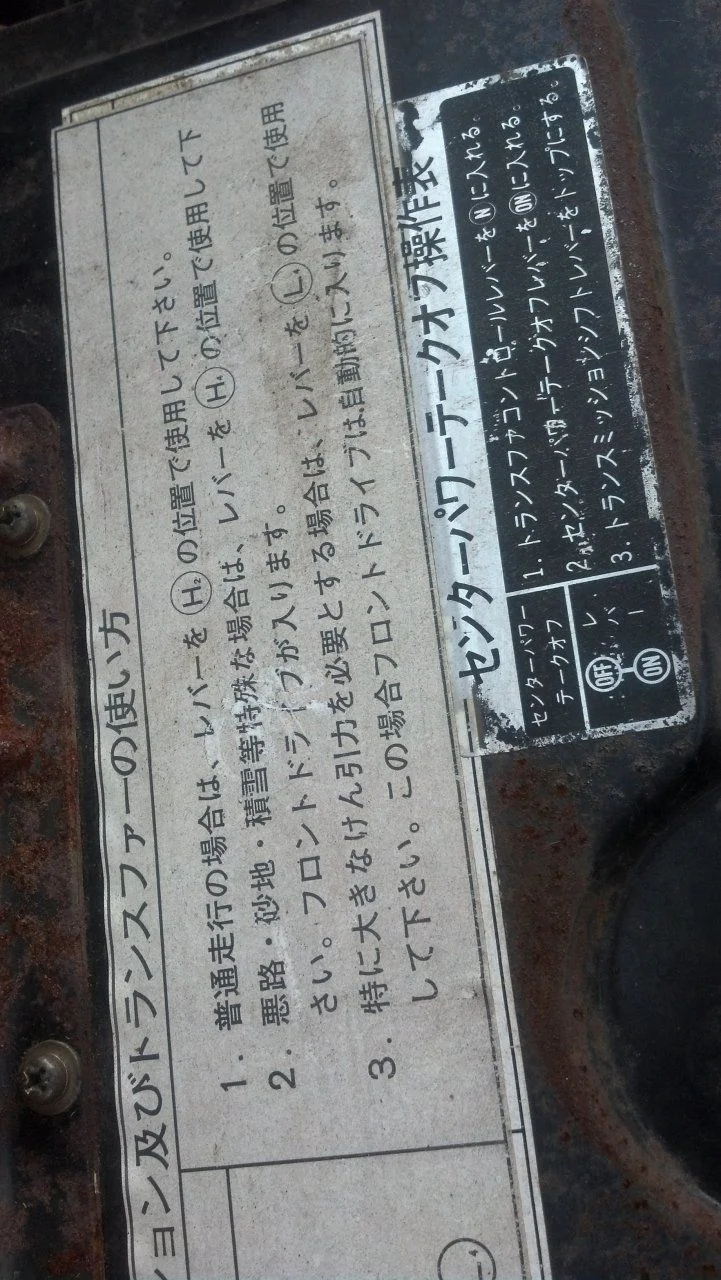 ション及びトランスファーの使い方
1. 普通走行の場合は、レバーを H₂ の位置で使用して下さい。
2. 悪路・砂地・積雪等特殊な場合は、レバーを H₄ の位置で使用して下
さい。フロントドライブが入ります。
3. 特に大きなけん引力を必要とする場合は、レバーを L₄ の位置で使用
して下さい。この場合フロントドライブは自動的に入ります。
センターパワーテークオフ操作表
センターパワー
テークオフ
レバー
OFF
ON
1. トランスファコントロールレバーを N に入れる。
2. センターパワーテークオフレバーを ON に入れる。
3. トランスミッションシフトレバーをトップにする。